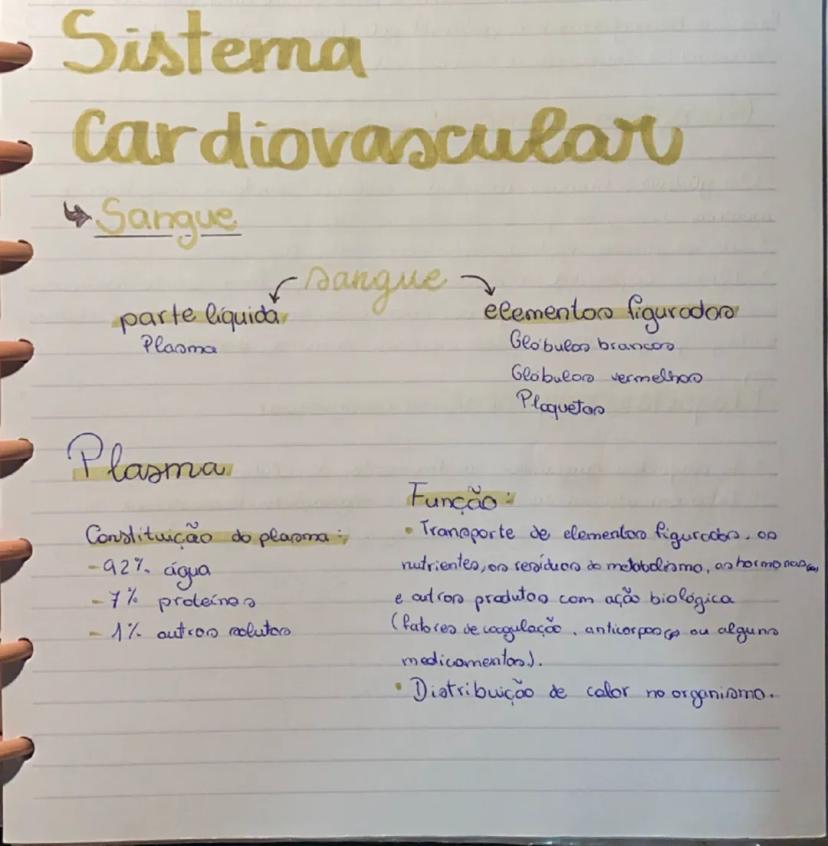 Sistema
cardiovascular
Sangue
sangue
parte líquida
Plasma
elementos figurados
Glóbulos brancos
Glóbulos vermelhos
Plaquetas
Plasma
Constituição do plasma:
-92% água
-7% proteínas
-1% outros solutos
Função:
• Transporte de elementos figurados, os
nutrientes, os resíduos do metabolismo, as hormonas
e outros produtos com ação biológica
(fatores de coagulação, anticorpos ou alguns
medicamentos).
• Distribuição de calor no organismo.